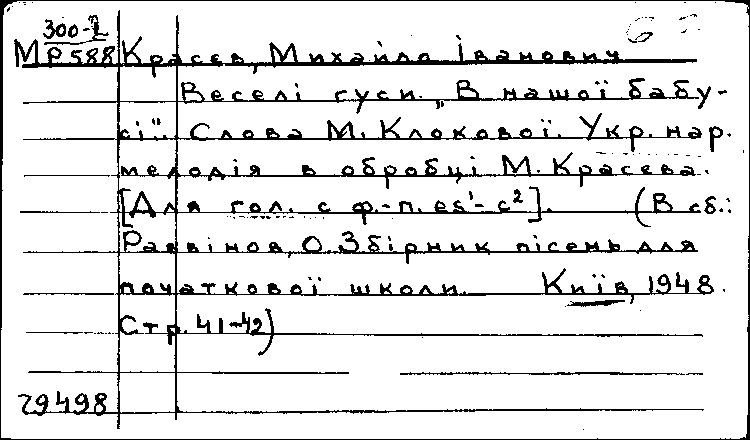 300-2
М Р588 Красєв, Михайло Іванович
Веселі гуси. „В нашої бабу-
сі". Слова М. Клокової. Укр. нар.
мелодія в обробці М. Красєва.
[Для гол. с ф.-п. es¹-c²]. (В сб.:
Раввінов, О. Збірник пісень для
початкової школи. Київ, 1948.
Стр. 41-42)
29498